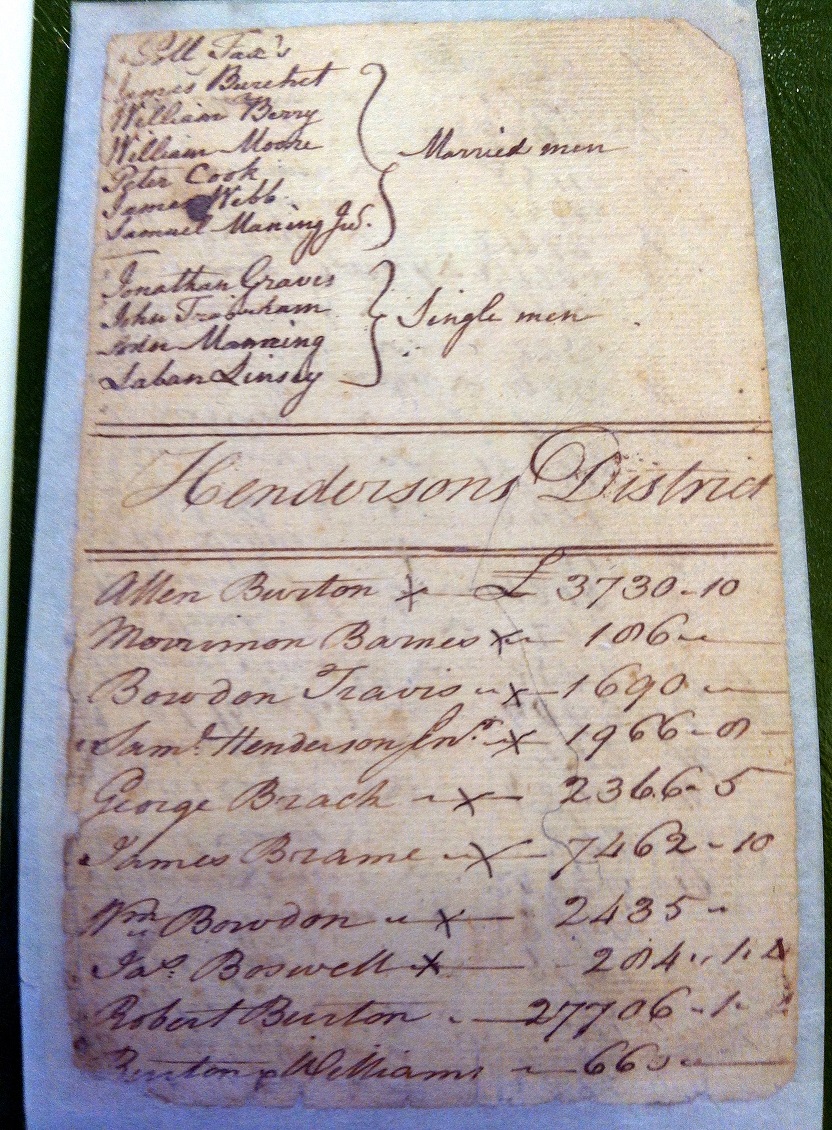 Poll Tax's
James Burchet
William Berry
William Moore
Peter Cook
James Webb
Samuel Maning Jur.
Married men
Jonathan Graves
John
Manning
Laban Linsey
Single men
Hendersons District
Allen Burton x £ 3730 - 10
Morrimon Barnes x 186
Bowdon Travis x 1690
Saml. Henderson Jnr. x 1966 - 8
George Brach x 2366 - 5
James Brame x 7462 - 10
Wm. Bowdon x 2435
Jas. Boswell x 284 " 1 " 4
Robert Burton 27706 - 1
Burton & Williams 660